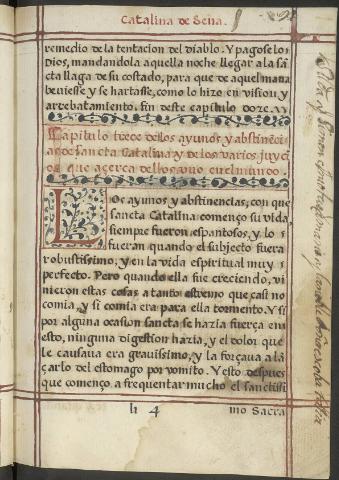 Catalina de Sena.
remedio de la tentacion del diablo. Y pagoselo
dios, mandandola aquella noche llegar a la sā
cta llaga de su costado, para que de aquel mana
beuiesse y se hartasse, como lo hizo en vision, y
arrebatamiento. fin deste capitulo doze.
Capitulo treze de los ayunos y abstinēci
as de sancta Catalina y de los varios juyci
os que açerca dellos uuo en el mundo.
LOs ayunos y abstinencias, con que
sancta Catalina començo su vida
siempre fueron espantosos, y lo
fueran quando el subjecto fuera
robustissimo, y en la vida espiritual muy
perfecto. Pero quando ella fue creciendo, vi
nieron estas cosas a tanto estremo que casi no
comia, y si comia era para ella tormento. Y si
por alguna ocasion sancta se hazia fuerça en
esto, ninguna digestion hazia, y el dolor que
le causaua era grauissimo, y la forçaua a lā
çarlo del estomago por vomito. Y esto despues
que començo a frequentar mucho el sanctissi
h 4
mo Sacra